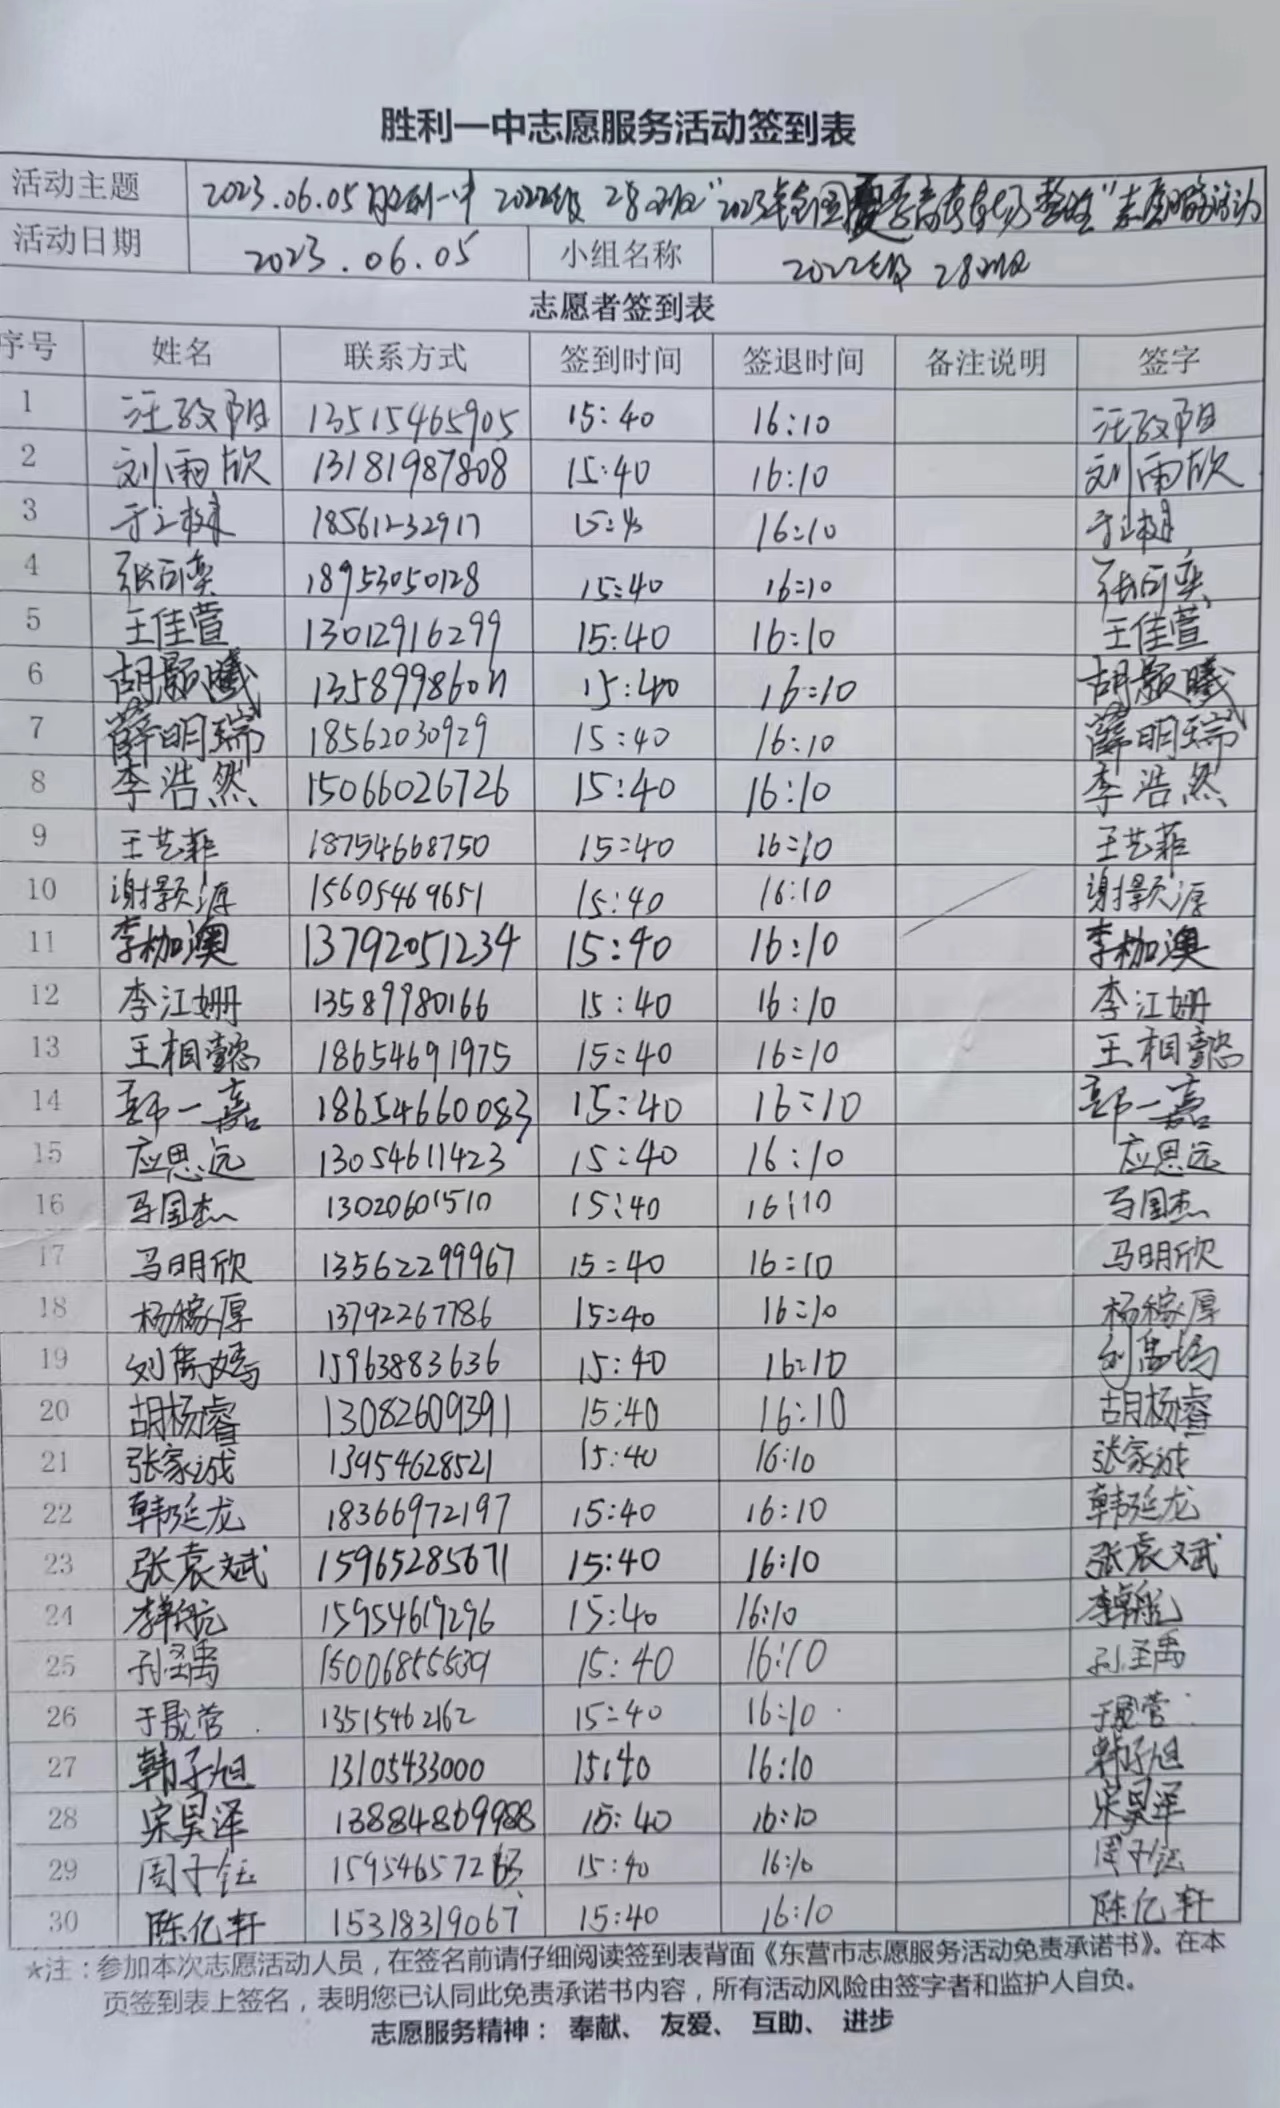 胜利一中志愿服务活动签到表
活动主题 2023.06.05胜利一中 2022级 28班“2023年全国夏季高考考场整理”志愿服务活动
活动日期 2023.06.05 小组名称 2022级 28班
志愿者签到表
序号 姓名 联系方式 签到时间 签退时间 备注说明 签字
1 汪政阳 13515465905 15:40 16:10 汪政阳
2 刘雨欣 13181987808 15:40 16:10 刘雨欣
3 18561232917 16:10
4 18953050128 15:40 16:10
5 王佳萱 13012916299 15:40 16:10 王佳萱
6 胡颢曦 15:40 16:10 胡颢曦
7 薛明瑞 18562030929 15:40 16:10 薛明瑞
8 李浩然 15066026726 15:40 16:10 李浩然
9 王艺菲 18754668750 15:40 16:10 王艺菲
10 谢颢源 15605469651 15:40 16:10 谢颢源
11 李枷澳 13792051234 15:40 16:10 李枷澳
12 李江姗 13589980166 15:40 16:10 李江姗
13 王相懿 18654691975 15:40 16:10 王相懿
14 郭一嘉 18654660083 15:40 16:10 郭一嘉
15 应思远 13054611423 15:40 16:10 应思远
16 马国杰 13020601510 15:40 16:10 马国杰
17 马明欣 13562299967 15:40 16:10 马明欣
18 杨稼厚 13792267786 15:40 16:10 杨稼厚
19 刘禹嫣 15963883636 15:40 16:10 刘禹嫣
20 胡杨睿 13082609391 15:40 16:10 胡杨睿
21 张家诚 13954628521 15:40 16:10 张家诚
22 韩延龙 18366972197 15:40 16:10 韩延龙
23 张袁斌 15965285671 15:40 16:10 张袁斌
24 15954619296 15:40 16:10
25 孙圣禹 15:40 16:10 孙圣禹
26 于晟营 13515462162 15:40 16:10 于晟营
27 韩子旭 13105433000 15:40 16:10 韩子旭
28 宋昊泽 13884869988 15:40 16:10 宋昊泽
29 周子钰 15:40 16:10 周子钰
30 陈亿轩 15318319067 15:40 16:10 陈亿轩
*注：参加本次志愿活动人员，在签名前请仔细阅读签到表背面《东营市志愿服务活动免责承诺书》。在本
页签到表上签名，表明您已认同此免责承诺书内容，所有活动风险由签字者和监护人自负。
志愿服务精神： 奉献、 友爱、 互助、 进步